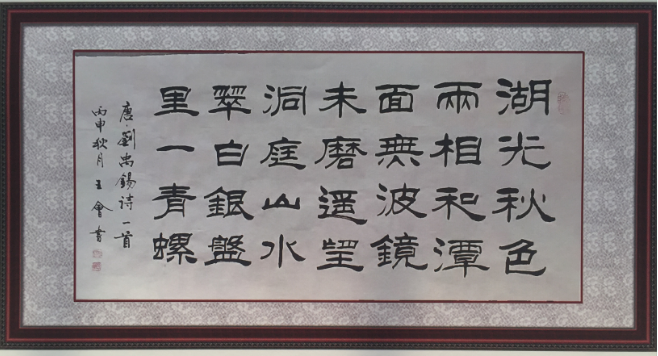 湖光秋色
兩相和潭
面無波鏡
未磨遥望
洞庭山水
翠白銀盤
里一青螺
唐劉禹錫诗一首
丙申秋月王會書